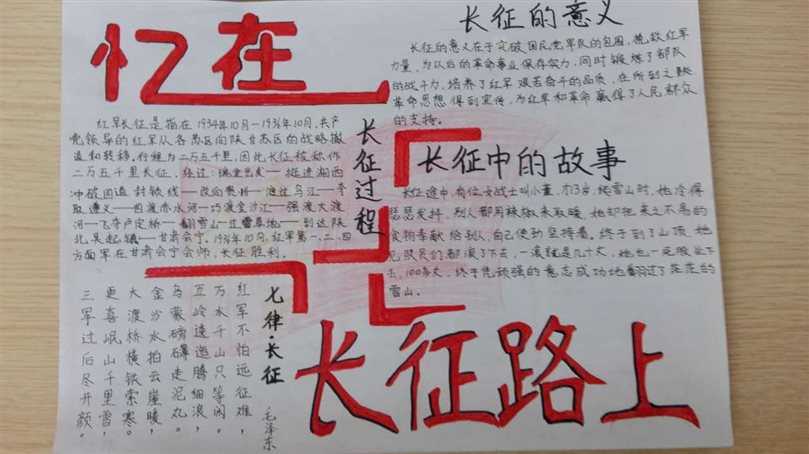 忆在
长征路上
长征的意义
长征的意义在于突破国民党军队的包围,挽救红军
力量,为以后的革命事业保存实力,同时锻炼了部队
的战斗力,培养了红军艰苦奋斗的品质,在所到之处
革命思想得到宣传,为红军和革命赢得了人民群众
的支持。
长征过程
红军长征是指在1934年10月—1936年10月,共产
党领导的红军从各苏区向陕甘苏区的战略撤
退和转移。行程为二万五千里,因此长征被称作
二万五千里长征,经过:瑞金出发—挺进湘西
冲破四道封锁线—改向贵州—渡过乌江—夺
取遵义—四渡赤水河—巧渡金沙江—强渡大渡
河—飞夺泸定桥—翻雪山—过草地—到达陕
北吴起镇—甘肃会宁。1936年10月,红军第一、二、四
方面军在甘肃会宁会师,长征胜利。
长征中的故事
长征途中,有位女战士叫小董,才13岁,爬雪山时,她冷得
瑟瑟发抖,别人都用辣椒来取暖,她却把来之不易的
食物奉献给别人,自己使劲坚持着。终于到了山顶,她
见队员们都滚了下去,一滚就是几十丈,她也一咬牙坐下
去,100多丈,终于凭顽强的意志成功地翻过了茫茫的
雪山。
七律·长征
毛泽东
红军不怕远征难,
万水千山只等闲。
五岭逶迤腾细浪,
乌蒙磅礴走泥丸。
金沙水拍云崖暖,
大渡桥横铁索寒。
更喜岷山千里雪,
三军过后尽开颜。